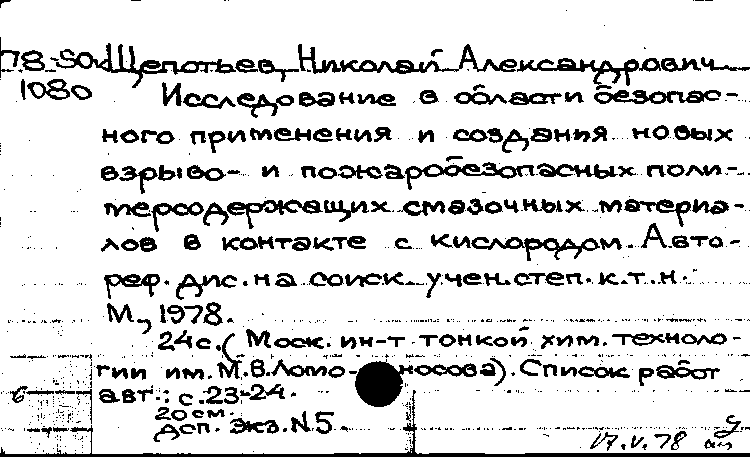 78-50d Щепотьев, Николай Александрович
1080 Исследование в области безопас-
ного применения и создания новых
взрыво- и пожаробезопасных поли-
мерсодержащих смазочных материа-
лов в контакте с кислородом. Авто-
реф. дис. на соиск. учен. степ. к.т.н.
М., 1978.
24с. (Моск. ин-т тонкой хим. техноло-
гии им. М.В.Ломо-носова). Список работ
авт.: с.23-24.
20см.
Дсп. Экз. N5.
17.V.78